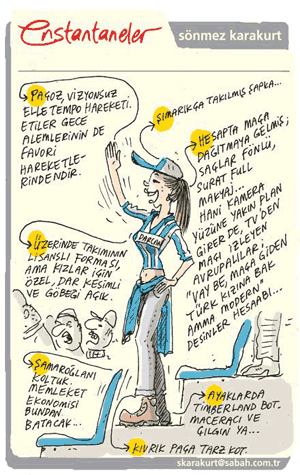 Enstantaneler
sönmez karakurt
PAÇOZ, VİZYONSUZ
ELLE TEMPO HAREKETİ.
ETİLER GECE
ALEMLERİNİN DE
FAVORİ
HAREKETLE-
RİNDENDİR.
ŞIMARIKÇA TAKILMIŞ ŞAPKA...
HESAPTA MAÇA
DAĞITMAYA GELMİŞ;
SAÇLAR FÖNLÜ,
SURAT FULL
MAKYAJ...
HANİ KAMERA
YÜZÜNE YAKIN PLAN
GİRER DE, TV'DEN
MAÇI İZLEYEN
AVRUPALILAR:
"VAY BE, MAÇA GİDEN
TÜRK KIZINA BAK
AMMA MODERN"
DESİNLER HESAABI...
ÜZERİNDE TAKIMININ
LİSANSLI FORMASI,
AMA KIZLAR İÇİN
ÖZEL, DAR KESİMLİ
VE GÖBEĞİ AÇIK.
ŞAMAROĞLANI
KOLTUK.
MEMLEKET
EKONOMİSİ
BUNDAN
BATACAK...
AYAKLARDA
TIMBERLAND BOT.
MACERACI VE
ÇILGIN YA...
KIVRIK PAÇA TARZ KOT.
skarakurt@sabah.com.tr